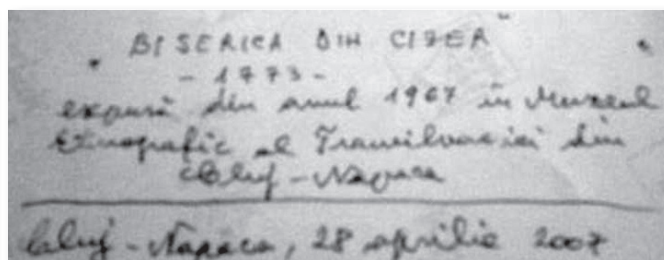 "BISERICA DIN CIZER"
- 1773 -
expusă din anul 1967 în Muzeul
Etnografic al Transilvaniei din
Cluj-Napoca
Cluj-Napoca, 28 aprilie 2007